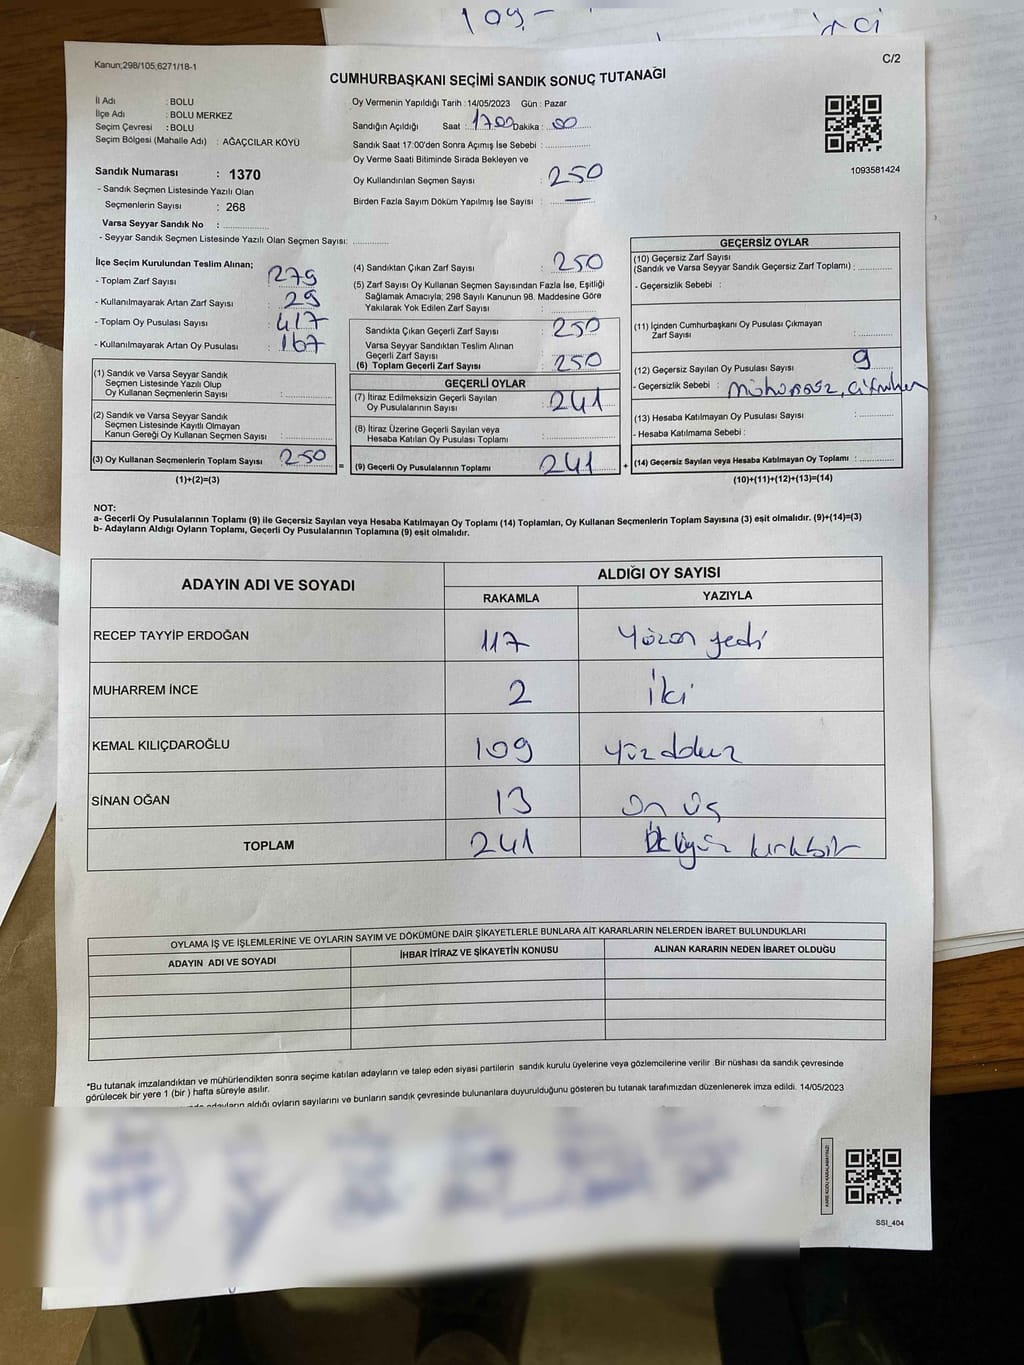 109.-
Kanun;298/105;6271/18-1
C/2
CUMHURBAŞKANI SEÇİMİ SANDIK SONUÇ TUTANAĞI
İl Adı : BOLU
İlçe Adı : BOLU MERKEZ
Seçim Çevresi : BOLU
Seçim Bölgesi (Mahalle Adı) : AĞAÇCILAR KÖYÜ
Sandık Numarası : 1370
- Sandık Seçmen Listesinde Yazılı Olan
Seçmenlerin Sayısı : 268
Varsa Seyyar Sandık No : ..............
- Seyyar Sandık Seçmen Listesinde Yazılı Olan Seçmen Sayısı: ............
Oy Vermenin Yapıldığı Tarih : 14/05/2023 Gün : Pazar
Sandığın Açıldığı Saat : 1700 Dakika : 00
Sandık Saat 17:00'den Sonra Açımış İse Sebebi : ..............
Oy Verme Saati Bitiminde Sırada Bekleyen ve
Oy Kullandırılan Seçmen Sayısı : 250
Birden Fazla Sayım Döküm Yapılmış İse Sayısı : —
1093581424
İlçe Seçim Kurulundan Teslim Alınan;
- Toplam Zarf Sayısı : 279
- Kullanılmayarak Artan Zarf Sayısı : 29
- Toplam Oy Pusulası Sayısı : 417
- Kullanılmayarak Artan Oy Pusulası : 167
(1) Sandık ve Varsa Seyyar Sandık
Seçmen Listesinde Yazılı Olup
Oy Kullanan Seçmenlerin Sayısı : ..............
(2) Sandık ve Varsa Seyyar Sandık
Seçmen Listesinde Kayıtlı Olmayan
Kanun Gereği Oy Kullanan Seçmen Sayısı : ..............
(3) Oy Kullanan Seçmenlerin Toplam Sayısı : 250
(1)+(2)=(3)
=
(4) Sandıktan Çıkan Zarf Sayısı : 250
(5) Zarf Sayısı Oy Kullanan Seçmen Sayısından Fazla İse, Eşitliği
Sağlamak Amacıyla; 298 Sayılı Kanunun 98. Maddesine Göre
Yakılarak Yok Edilen Zarf Sayısı : ..............
Sandıkta Çıkan Geçerli Zarf Sayısı : 250
Varsa Seyyar Sandıktan Teslim Alınan
Geçerli Zarf Sayısı : ..............
(6) Toplam Geçerli Zarf Sayısı : 250
GEÇERLİ OYLAR
(7) İtiraz Edilmeksizin Geçerli Sayılan
Oy Pusulalarının Sayısı : 241
(8) İtiraz Üzerine Geçerli Sayılan veya
Hesaba Katılan Oy Pusulası Toplamı : ..............
(9) Geçerli Oy Pusulalarının Toplamı : 241
+
GEÇERSİZ OYLAR
(10) Geçersiz Zarf Sayısı
(Sandık ve Varsa Seyyar Sandık Geçersiz Zarf Toplamı) : ............
- Geçersizlik Sebebi :
(11) İçinden Cumhurbaşkanı Oy Pusulası Çıkmayan
Zarf Sayısı : ............
(12) Geçersiz Sayılan Oy Pusulası Sayısı : 9
- Geçersizlik Sebebi :
(13) Hesaba Katılmayan Oy Pusulası Sayısı : ............
- Hesaba Katılmama Sebebi :
(14) Geçersiz Sayılan veya Hesaba Katılmayan Oy Toplamı : ............
(10)+(11)+(12)+(13)=(14)
NOT:
a- Geçerli Oy Pusulalarının Toplamı (9) ile Geçersiz Sayılan veya Hesaba Katılmayan Oy Toplamı (14) Toplamları, Oy Kullanan Seçmenlerin Toplam Sayısına (3) eşit olmalıdır. (9)+(14)=(3)
b- Adayların Aldığı Oyların Toplamı, Geçerli Oy Pusulalarının Toplamına (9) eşit olmalıdır.
ADAYIN ADI VE SOYADI ALDIĞI OY SAYISI
RAKAMLA YAZIYLA
RECEP TAYYİP ERDOĞAN 117 Yüzon yedi
MUHARREM İNCE 2 İki
KEMAL KILIÇDAROĞLU 109
SİNAN OĞAN 13 On üç
TOPLAM 241 kırkbir
OYLAMA İŞ VE İŞLEMLERİNE VE OYLARIN SAYIM VE DÖKÜMÜNE DAİR ŞİKAYETLERLE BUNLARA AİT KARARLARIN NELERDEN İBARET BULUNDUKLARI
ADAYIN ADI VE SOYADI İHBAR İTİRAZ VE ŞİKAYETİN KONUSU ALINAN KARARIN NEDEN İBARET OLDUĞU
*Bu tutanak imzalandıktan ve mühürlendikten sonra seçime katılan adayların ve talep eden siyasi partilerin sandık kurulu üyelerine veya gözlemcilerine verilir .Bir nüshası da sandık çevresinde
görülecek bir yere 1 (bir ) hafta süreyle asılır.
adayların aldığı oyların sayılarını ve bunların sandık çevresinde bulunanlara duyurulduğunu gösteren bu tutanak tarafımızdan düzenlenerek imza edildi. 14/05/2023
SSI_404